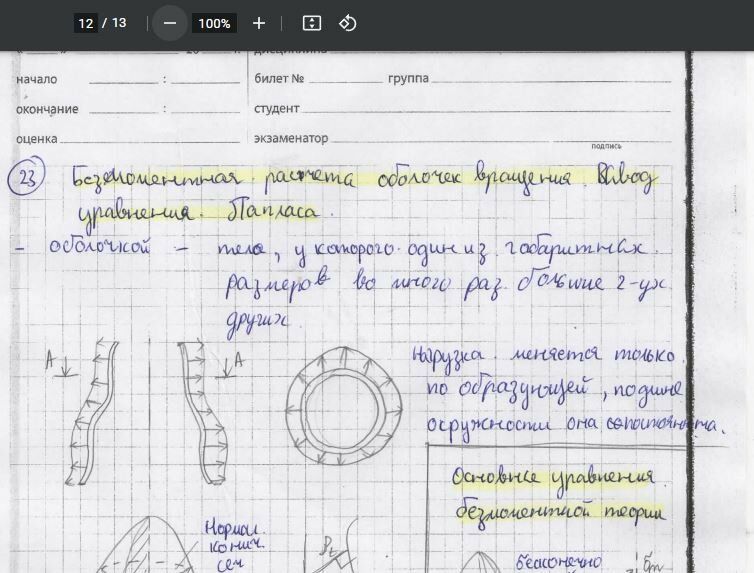 12 / 13 100%
дисциплина
начало : билет № группа
окончание : студент
оценка экзаменатор
подпись
23 Безмоментная расчета оболочек вращения. Вывод
уравнения. Лапласа.
- оболочкой - тело, у которого один из габаритных
размеров во много раз больше 2-ух
других.
A A
Нагрузка меняется только
по образующей, по длине
окружности она
Основные уравнения
безмоментной теории
Нормал.
конич.
сеч
бесконечно